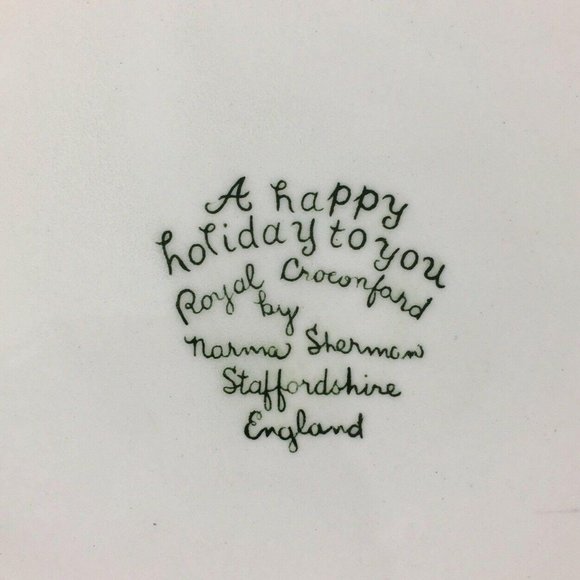 A happy
holiday to you
Royal Croconfard
by
Narma Sherman
Staffordshire
England